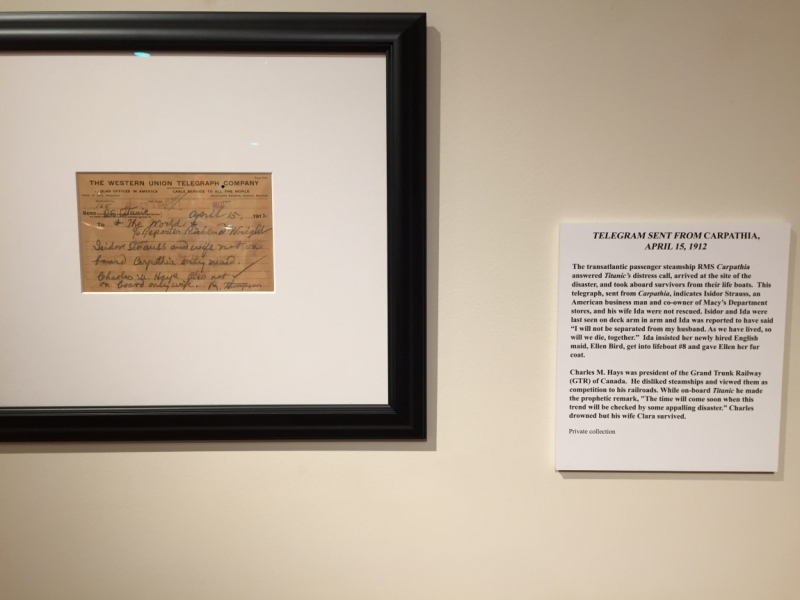 THE WESTERN UNION TELEGRAPH COMPANY
OFFICES IN AMERICA CABLE SERVICE TO ALL THE WORLD
April 15, 191
To The World
Isidor Strauss and wife not on
board Carpathia only maid.
Charles M. Hays also not
on board only wife.
TELEGRAM SENT FROM CARPATHIA,
APRIL 15, 1912
The transatlantic passenger steamship RMS Carpathia
answered Titanic's distress call, arrived at the site of the
disaster, and took aboard survivors from their life boats. This
telegraph, sent from Carpathia, indicates Isidor Strauss, an
American business man and co-owner of Macy's Department
stores, and his wife Ida were not rescued. Isidor and Ida were
last seen on deck arm in arm and Ida was reported to have said
"I will not be separated from my husband. As we have lived, so
will we die, together." Ida insisted her newly hired English
maid, Ellen Bird, get into lifeboat #8 and gave Ellen her fur
coat.
Charles M. Hays was president of the Grand Trunk Railway
(GTR) of Canada. He disliked steamships and viewed them as
competition to his railroads. While on-board Titanic he made
the prophetic remark, "The time will come soon when this
trend will be checked by some appalling disaster." Charles
drowned but his wife Clara survived.
Private collection